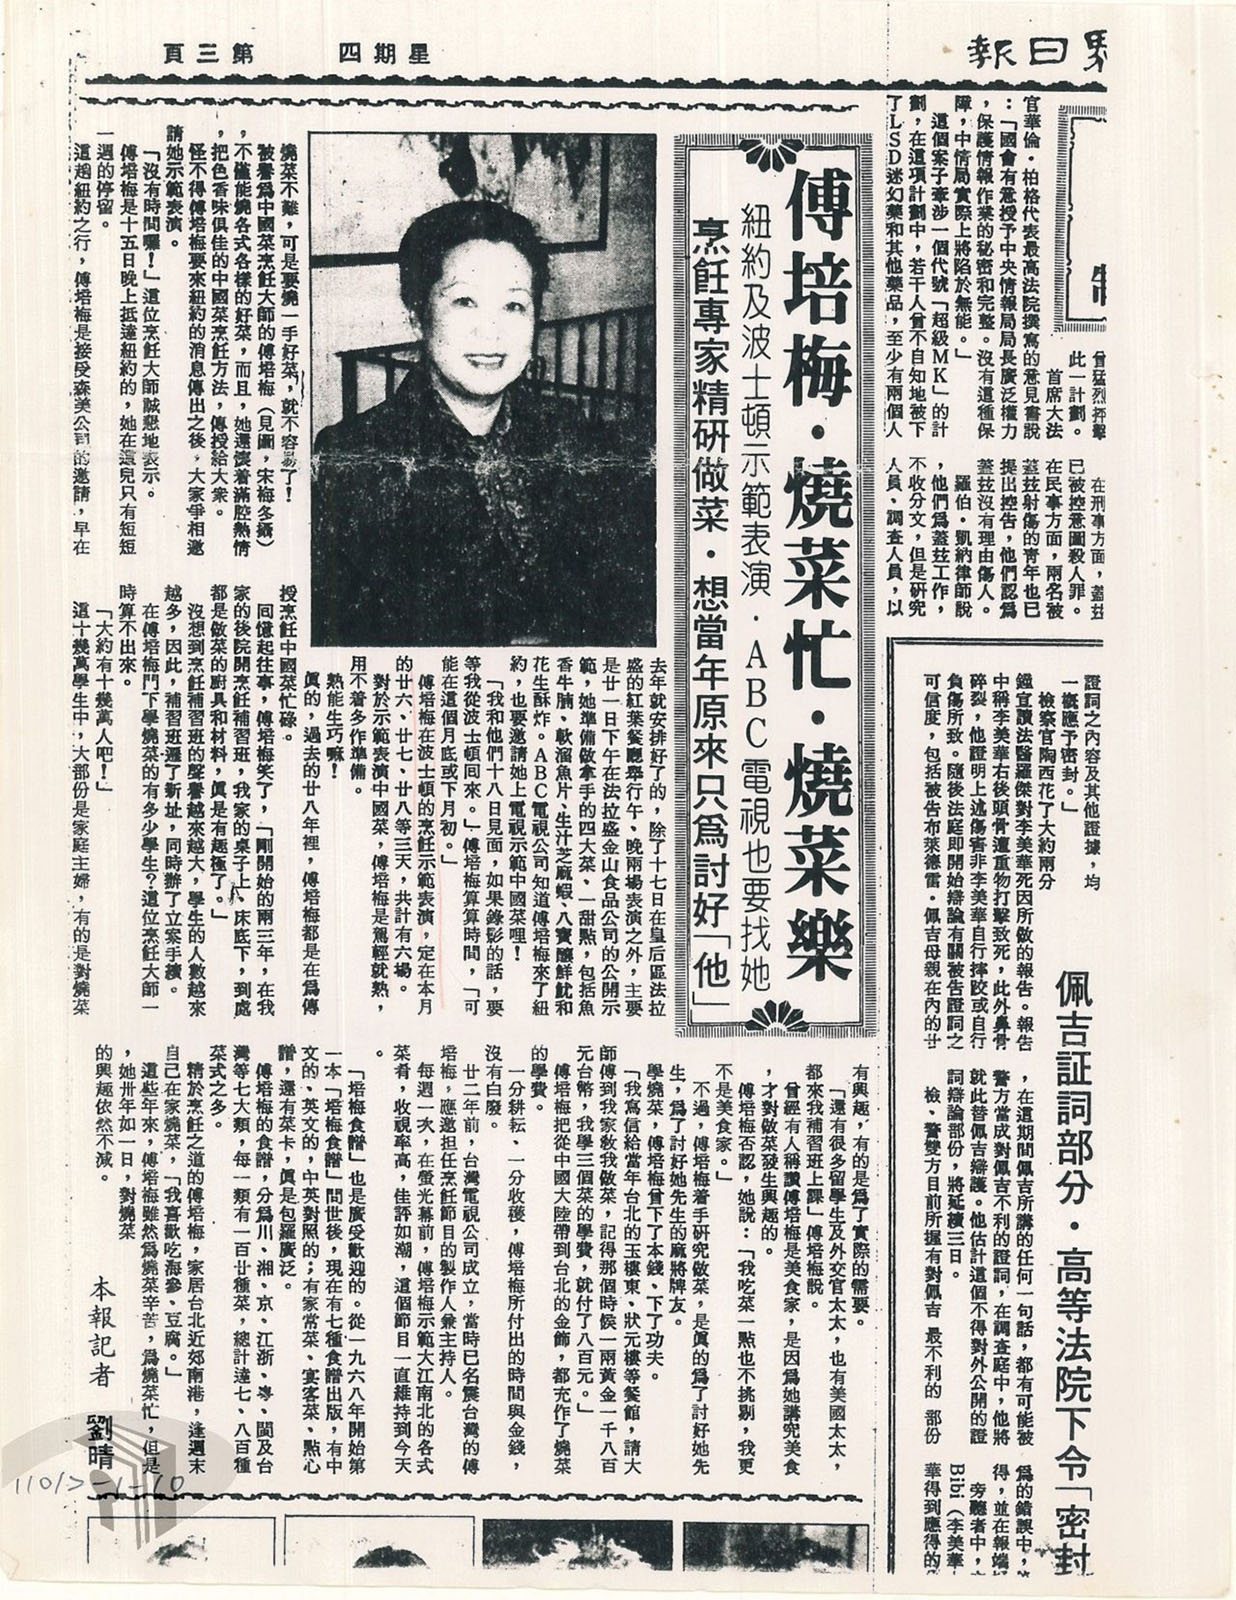 日報
星期四　第三頁
官華倫・柏格代表最高法院撰寫的意見書說
：「國會有意授予中央情報局局長廣泛權力
，保護情報作業的秘密和完整。沒有這種保
障，中情局實際上將陷於無能。」
這個案子牽涉一個代號「超級MK」的計
劃，在這項計劃中，若干人曾不自知地被下
了LSD迷幻藥和其他藥品，至少有兩個人
曾猛烈抨擊
此一計劃。
首席大法
在刑事方面，蓋玆
已被控意圖殺人罪。
在民事方面，兩名被
蓋玆射傷的靑年也已
提出控告，他們認爲
蓋玆沒有理由傷人。
羅伯・凱納律師說
，他們爲蓋玆工作，
不收分文，但是硏究
人員、調查人員，以
佩吉証詞部分・高等法院下令「密封
證詞之內容及其他證據，均
一概應予密封。」
檢察官陶西花了大約兩分
鐘宣讀法醫羅傑對李美華死因所做的報告。報告
中稱李美華右後頭骨遭重物打擊致死，此外鼻骨
碎裂，他證明上述傷害非李美華自行摔跤或自行
負傷所致。隨後法庭即開始辯論有關被告證詞之
可信度，包括被告布萊德雷・佩吉母親在內的廿
，在這期間佩吉所講的任何一句話，都有可能被
警方當成對佩吉不利的證詞，在調查庭中，他將
就此替佩吉辯護。他估計這個不得對外公開的證
詞辯論部份，將延續三日。
檢、警雙方目前所握有對佩吉最不利的部份
爲的錯誤中，
得，並在報端
旁聽者中，
Bibi（李美華
華得到應得的
傅培梅・燒菜忙・燒菜樂
紐約及波士頓示範表演・ABC電視也要找她
烹飪專家精研做菜・想當年原來只爲討好「他」
燒菜不難，可是要燒一手好菜，就不容易了！
被譽爲中國菜烹飪大師的傅培梅（見圖，宋梅冬攝）
，不僅能燒各式各樣的好菜，而且，她還懷着滿腔熱情
，把色香味俱佳的中國菜烹飪方法，傳授給大衆。
怪不得傅培梅要來紐約的消息傳出之後，大家爭相邀
請她示範表演。
「沒有時間囉！」這位烹飪大師誠懇地表示。
傅培梅是十五日晚上抵達紐約的，她在這兒只有短短
一週的停留。
這趟紐約之行，傅培梅是接受森美公司的邀請，早在
去年就安排好了的，除了十七日在皇后區法拉
盛的紅葉餐廳舉行午、晚兩場表演之外，主要
是廿一日下午在法拉盛金山食品公司的公開示
範，她準備做拿手的四大菜、一甜點，包括魚
香牛腩、軟溜魚片、生汁芝麻蝦、八寶釀鮮魷和
花生酥炸。ABC電視公司知道傅培梅來了紐
約，也要邀請她上電視示範中國菜哩！
「我和他們十八日見面，如果錄影的話，要
等我從波士頓回來。」傅培梅算算時間，「可
能在這個月底或下月初。」
傅培梅在波士頓的烹飪示範表演，定在本月
的廿六、廿七、廿八等三天，共計有六場。
對於示範表演中國菜，傅培梅是駕輕就熟，
用不着多作準備。
熟能生巧嘛！
眞的，過去的廿八年裡，傅培梅都是在爲傳
授烹飪中國菜忙碌。
回憶起往事，傅培梅笑了，「剛開始的兩三年，在我
家的後院開烹飪補習班，我家的桌子上、床底下，到處
都是做菜的廚具和材料，眞是有趣極了。」
沒想到烹飪補習班的聲譽越來越大，學生的人數越來
越多，因此，補習班遷了新址，同時辦了立案手續。
在傅培梅門下學燒菜的有多少學生？這位烹飪大師一
時算不出來。
「大約有十幾萬人吧！」
這十幾萬學生中，大部份是家庭主婦，有的是對燒菜
有興趣，有的是爲了實際的需要。
「還有很多留學生及外交官太太，也有美國太太，
都來我補習班上課」傅培梅說。
曾經有人稱讚傅培梅是美食家，是因爲她講究美食
，才對做菜發生興趣的。
傅培梅否認，她說：「我吃菜一點也不挑剔，我更
不是美食家。」
不過，傅培梅着手硏究做菜，是眞的爲了討好她先
生，爲了討好她先生的麻將牌友。
學燒菜，傅培梅曾下了本錢、下了功夫。
「我寫信給當年台北的玉樓東、狀元樓等餐館，請大
師傅到我家敎我做菜，記得那個時侯一兩黃金一千八百
元台幣，我學三個菜的學費，就付了八百元。」
傅培梅把從中國大陸帶到台北的金飾，都充作了燒菜
的學費。
一分耕耘、一分收穫，傅培梅所付出的時間與金錢，
沒有白廢。
廿二年前，台灣電視公司成立，當時已名震台灣的傅
培梅，應邀担任烹飪節目的製作人兼主持人。
每週一次，在螢光幕前，傅培梅示範大江南北的各式
菜肴，收視率高，佳評如潮，這個節目一直維持到今天
。
「培梅食譜」也是廣受歡迎的。從一九六八年開始第
一本「培梅食譜」問世後，現在有七種食譜出版，有中
文的、英文的，中英對照的；有家常菜、宴客菜、點心
譜，還有菜卡，眞是包羅廣泛。
傅培梅的食譜，分爲川、湘、京、江浙、粵、閩及台
灣等七大類，每一類有一百廿種菜，總計達七、八百種
菜式之多。
精於烹飪之道的傅培梅，家居台北近郊南港，逢週末
自己在家燒菜，「我喜歡吃海參、豆腐。」
這些年來，傅培梅雖然爲燒菜辛苦，爲燒菜忙，但是
，她卅年如一日，對燒菜
的興趣依然不減。
本報記者　劉晴